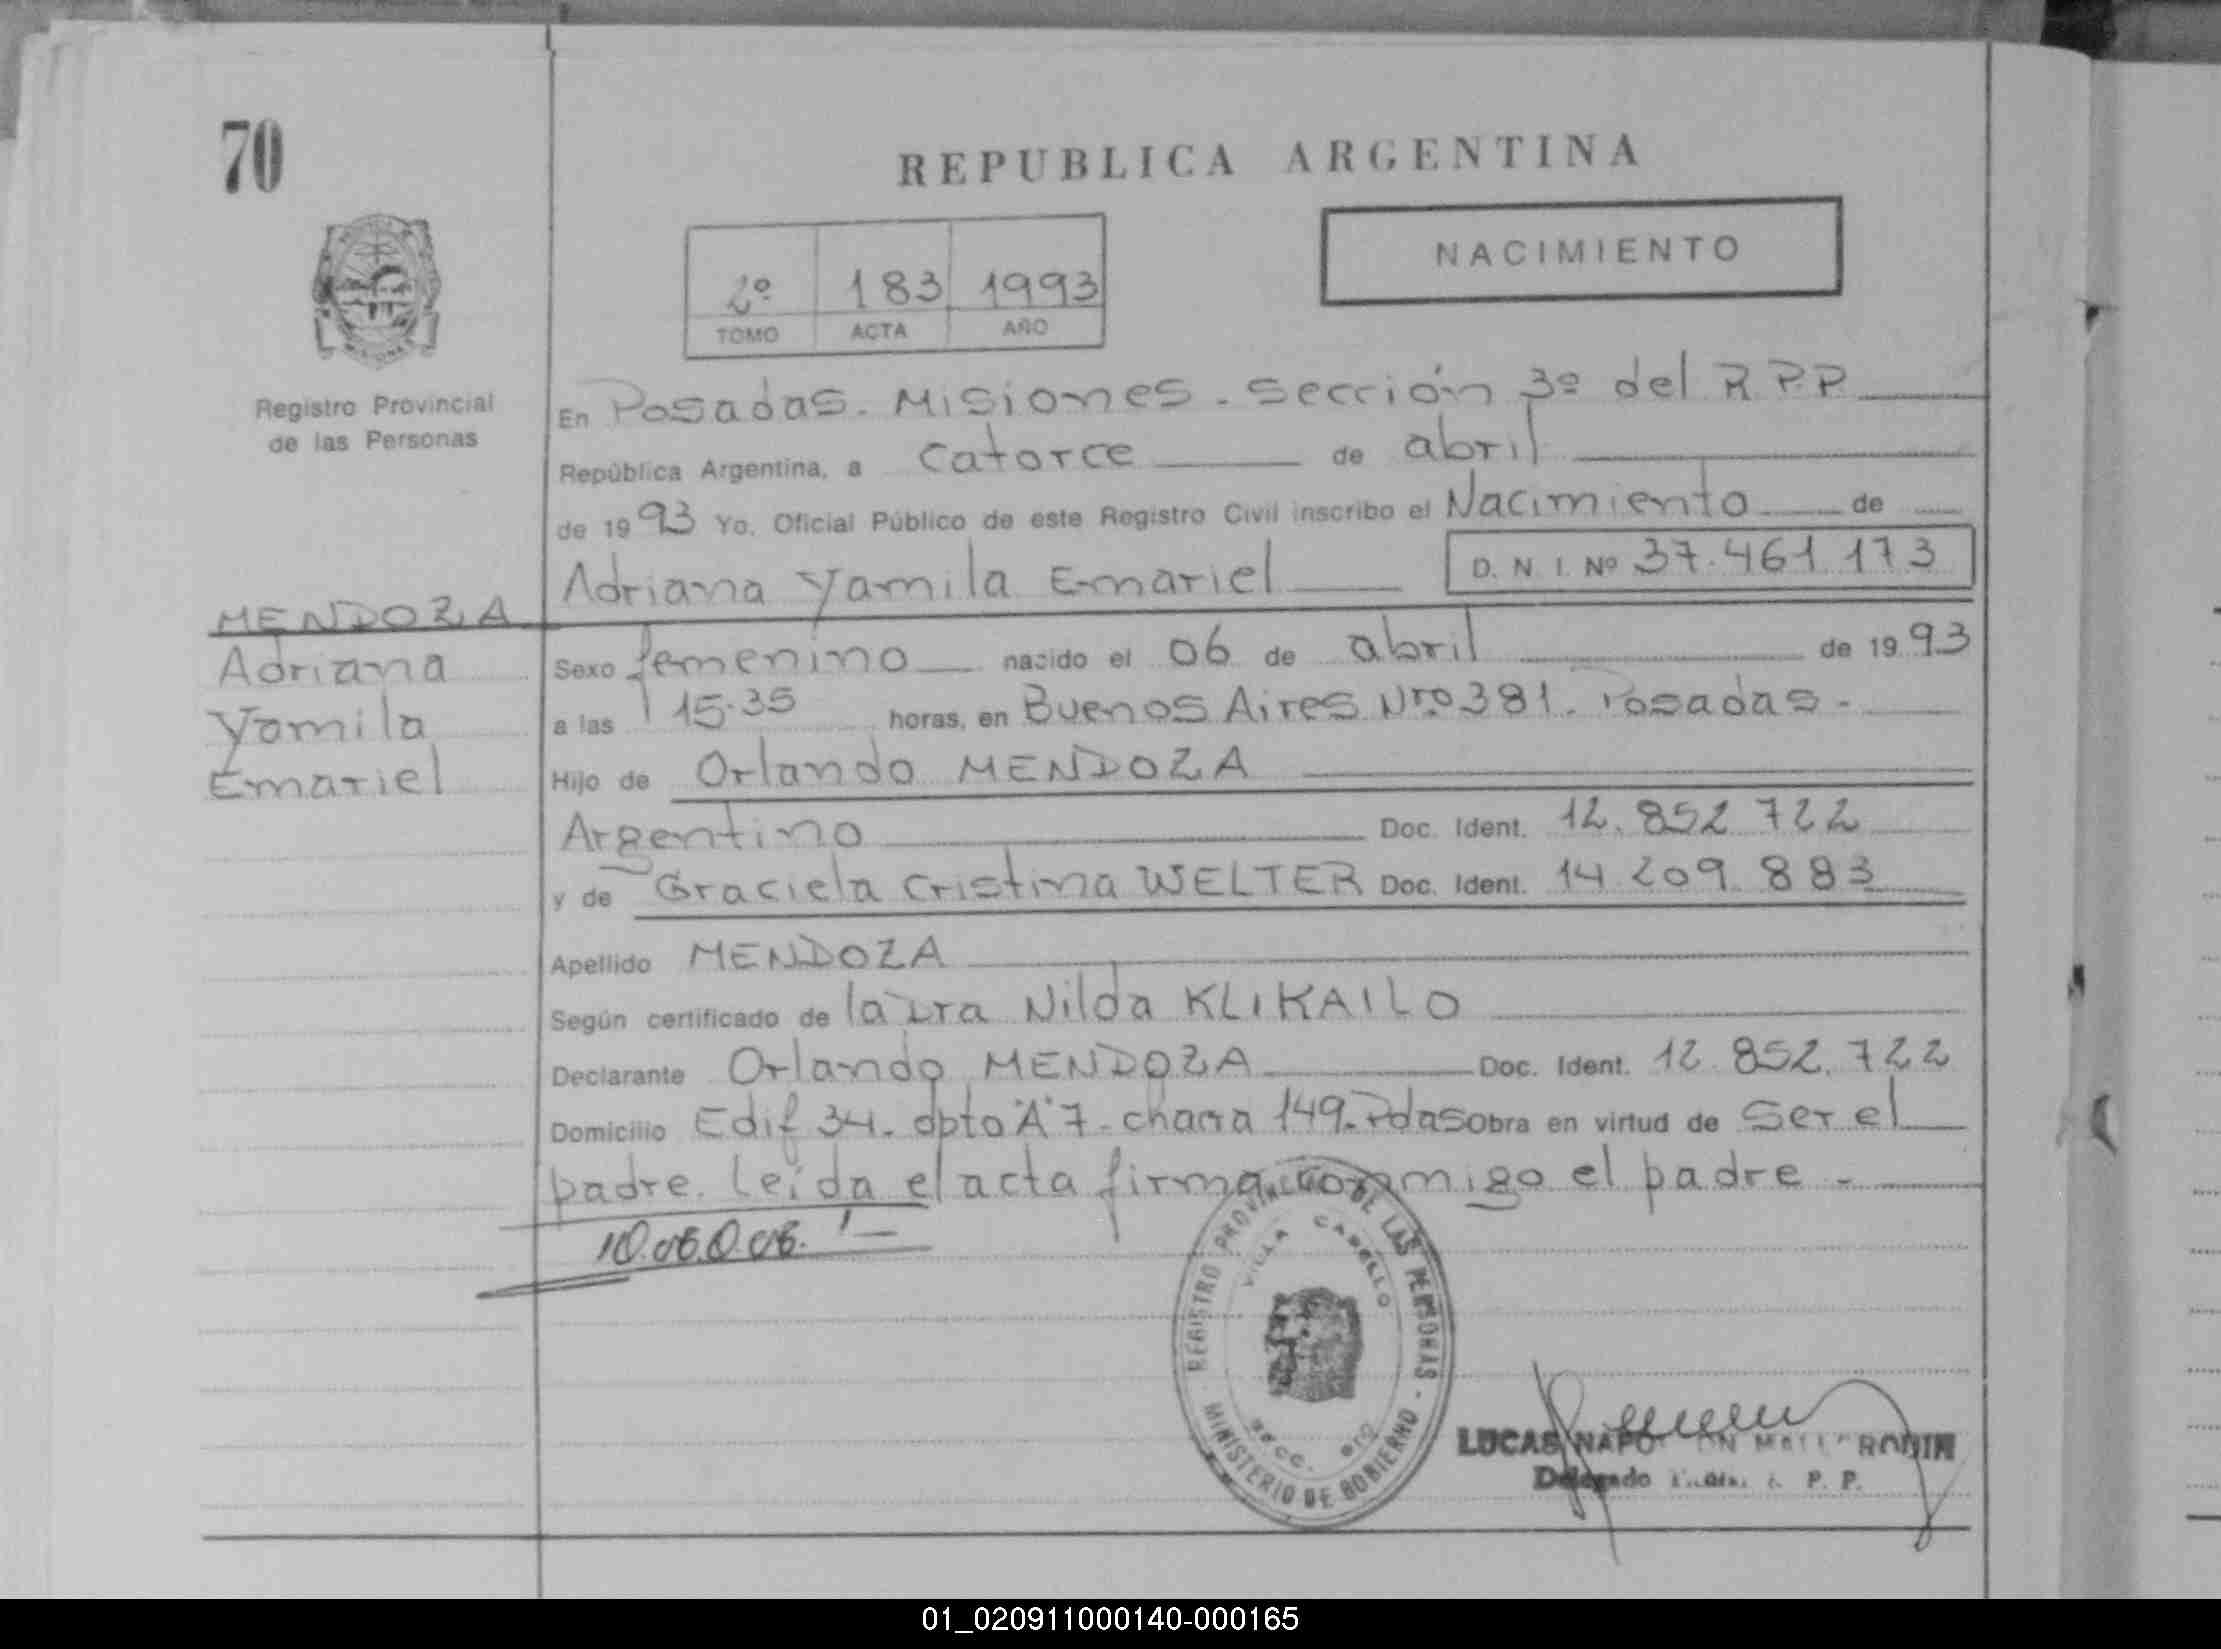 70
REPUBLICA ARGENTINA
NACIMIENTO
2º 183 1993
TOMO ACTA AÑO
MISIONES
Registro Provincial
de las Personas
En Posadas. Misiones. Sección 3º del R.P.P
República Argentina, a catorce de abril
de 1993 Yo, Oficial Público de este Registro Civil inscribo el Nacimiento de
Adriana Yamila Emariel D. N. I. Nº 37.461.173
MENDOZA
Adriana
Yamila
Emariel
Sexo femenino nacido el 06 de abril de 1993
a las 15.35 horas, en Buenos Aires Nro 381. Posadas.-
Hijo de Orlando MENDOZA
Argentino Doc. Ident. 12.852.722
y de Graciela Cristina WELTER Doc. Ident. 14.209.883
Apellido MENDOZA
Según certificado de la Dra Nilda KLIKAILO
Declarante Orlando MENDOZA Doc. Ident. 12.852.722
Domicilio Edif 34. dpto "A" 7. chacra 149. Pdas Obra en virtud de Ser el
padre. Leida el acta firma conmigo el padre.-
REGISTRO PROVINCIAL DE LAS PERSONAS
VILLA CABELLO
SECC.
MINISTERIO DE GOBIERNO
LUCAS
Delegado P. P.
01_020911000140-000165